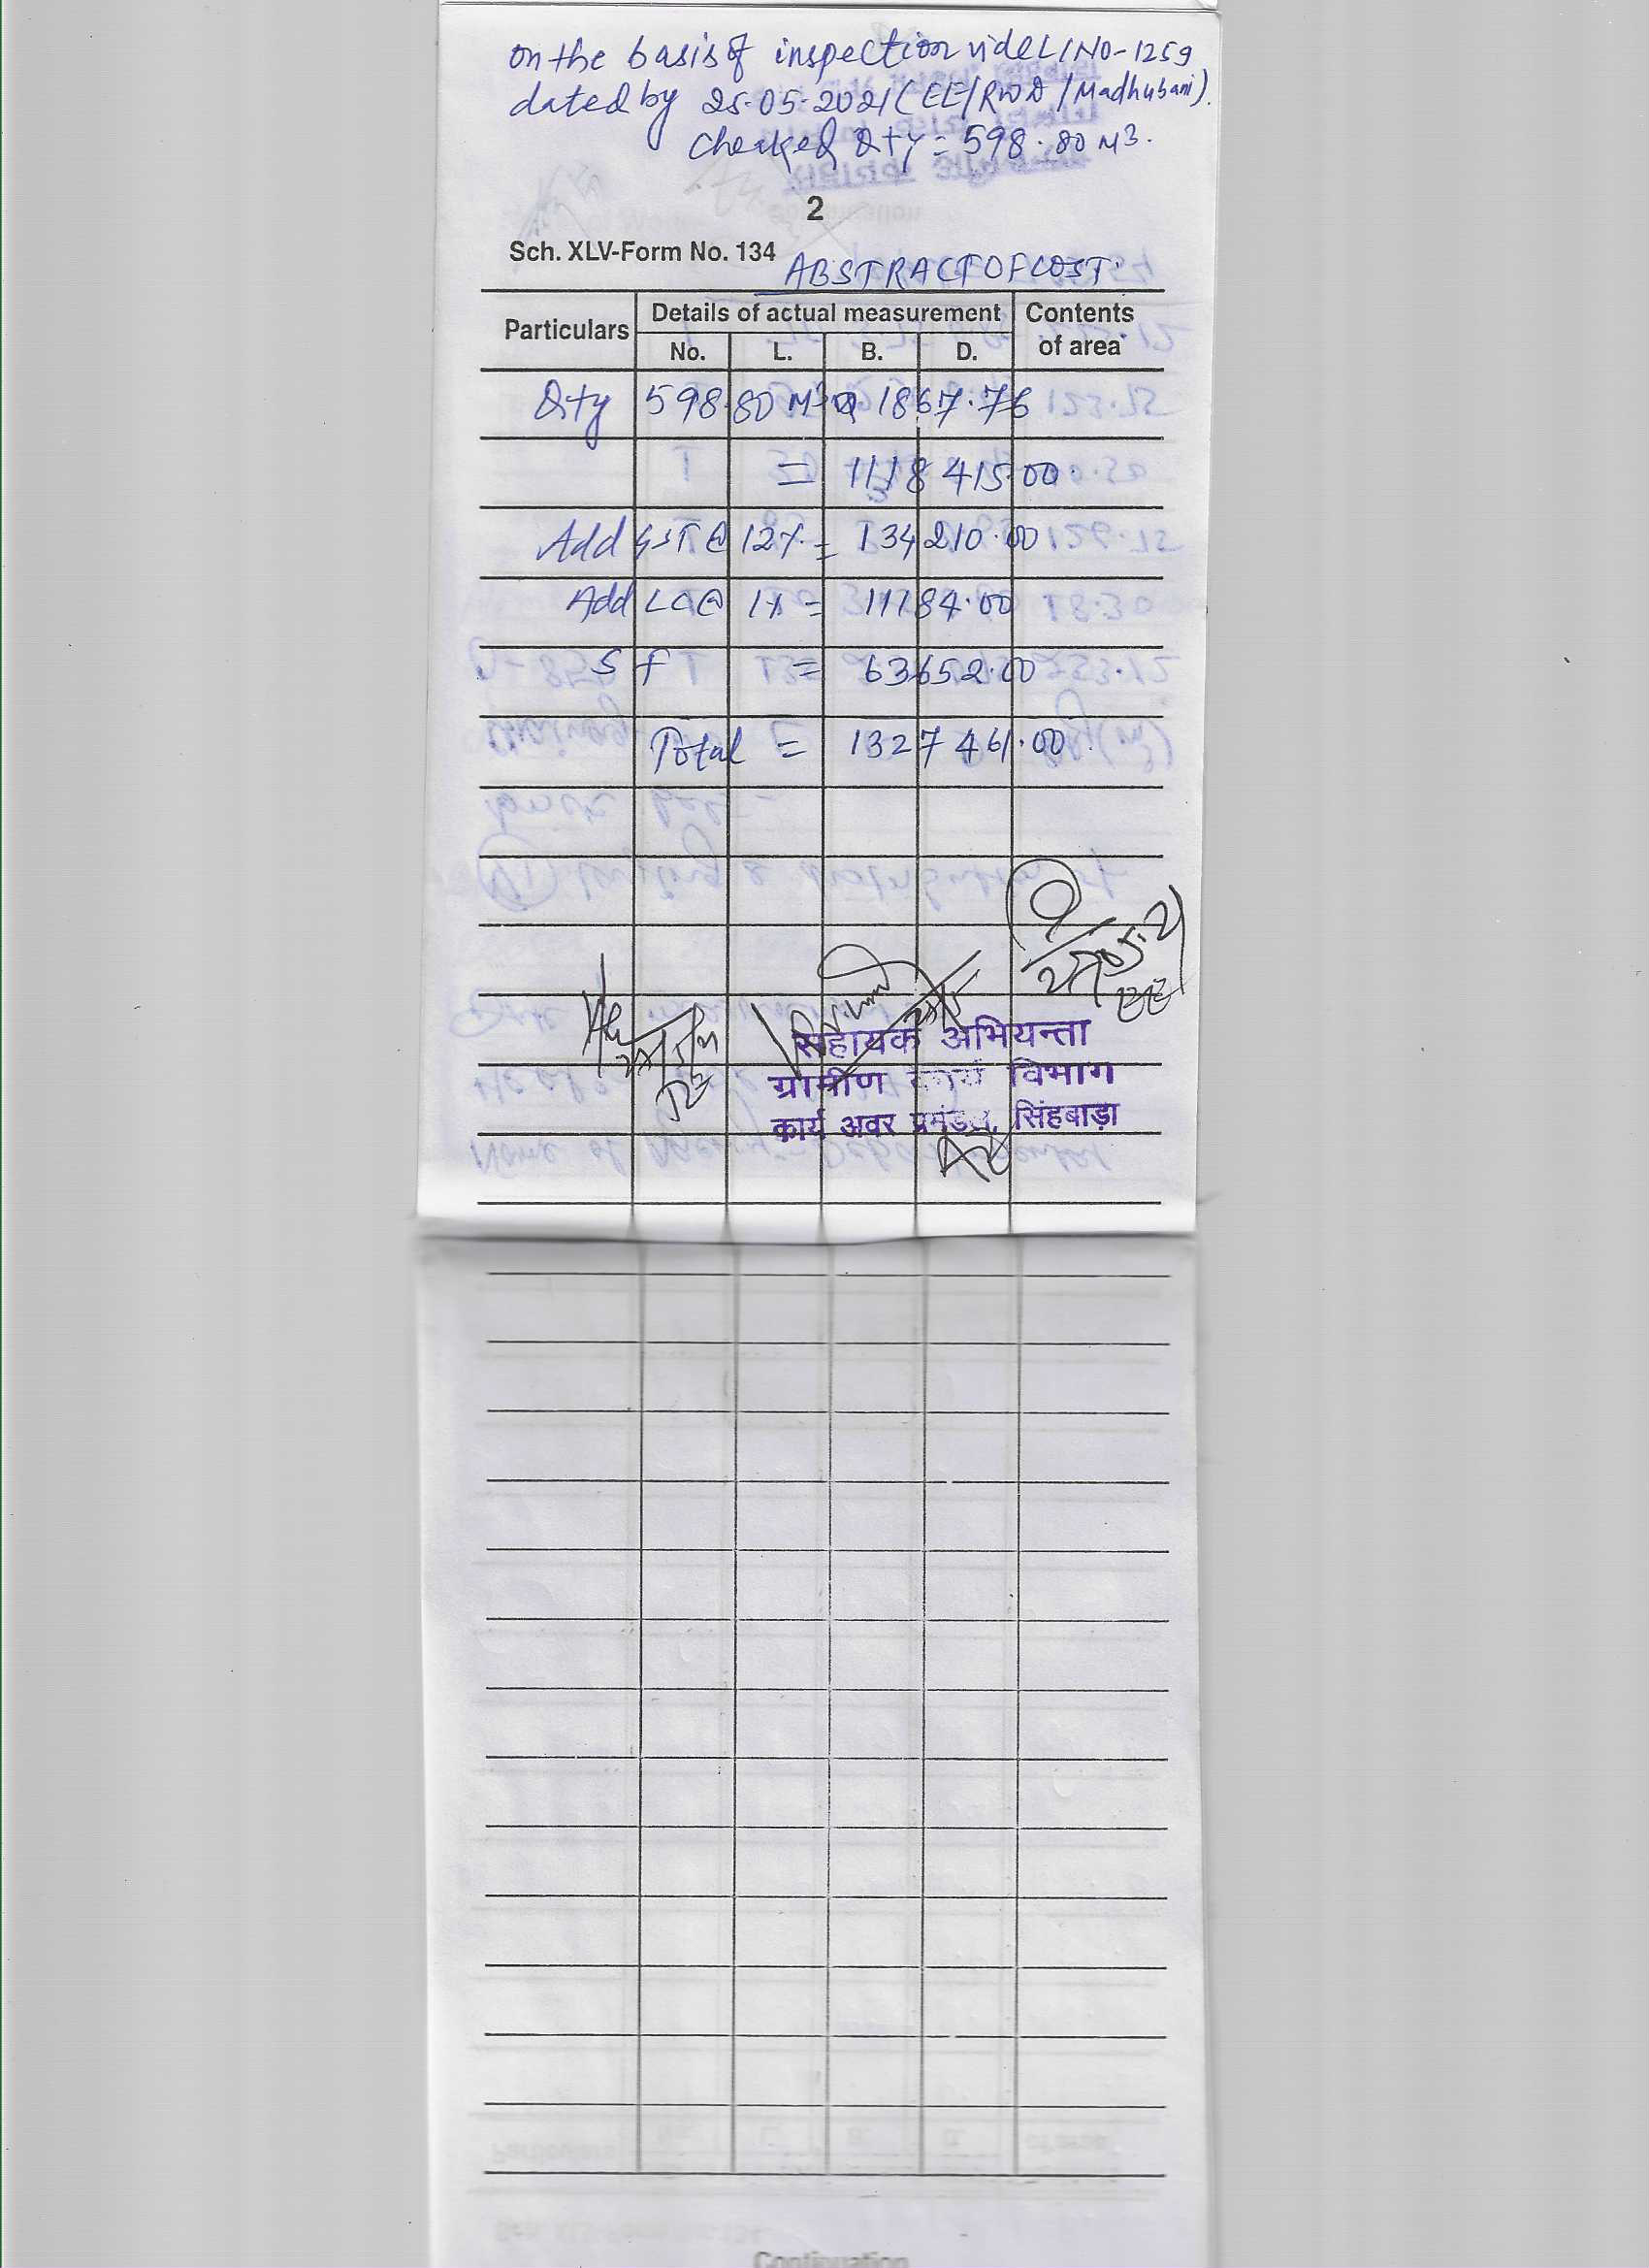 on the basis of inspection vide L/NO-1259
dated by 25-05-2021 (EE/RWD/Madhubani).
Checked Qty = 598.80 M3.
2
Sch. XLV-Form No. 134
ABSTRACT OF COST.
Particulars Details of actual measurement Contents of area
No. L. B. D.
Qty 598.80 M3 @ 1867.76
= 1118415.00
Add GST @ 12% = 134210.00
Add LC @ 1% = 11184.00
S F = 63652.00
Total = 1327461.00
EE
सहायक अभियन्ता
ग्रामीण कार्य विभाग
कार्य अवर प्रमंडल, सिंहबाड़ा
JE
AE
Continuation